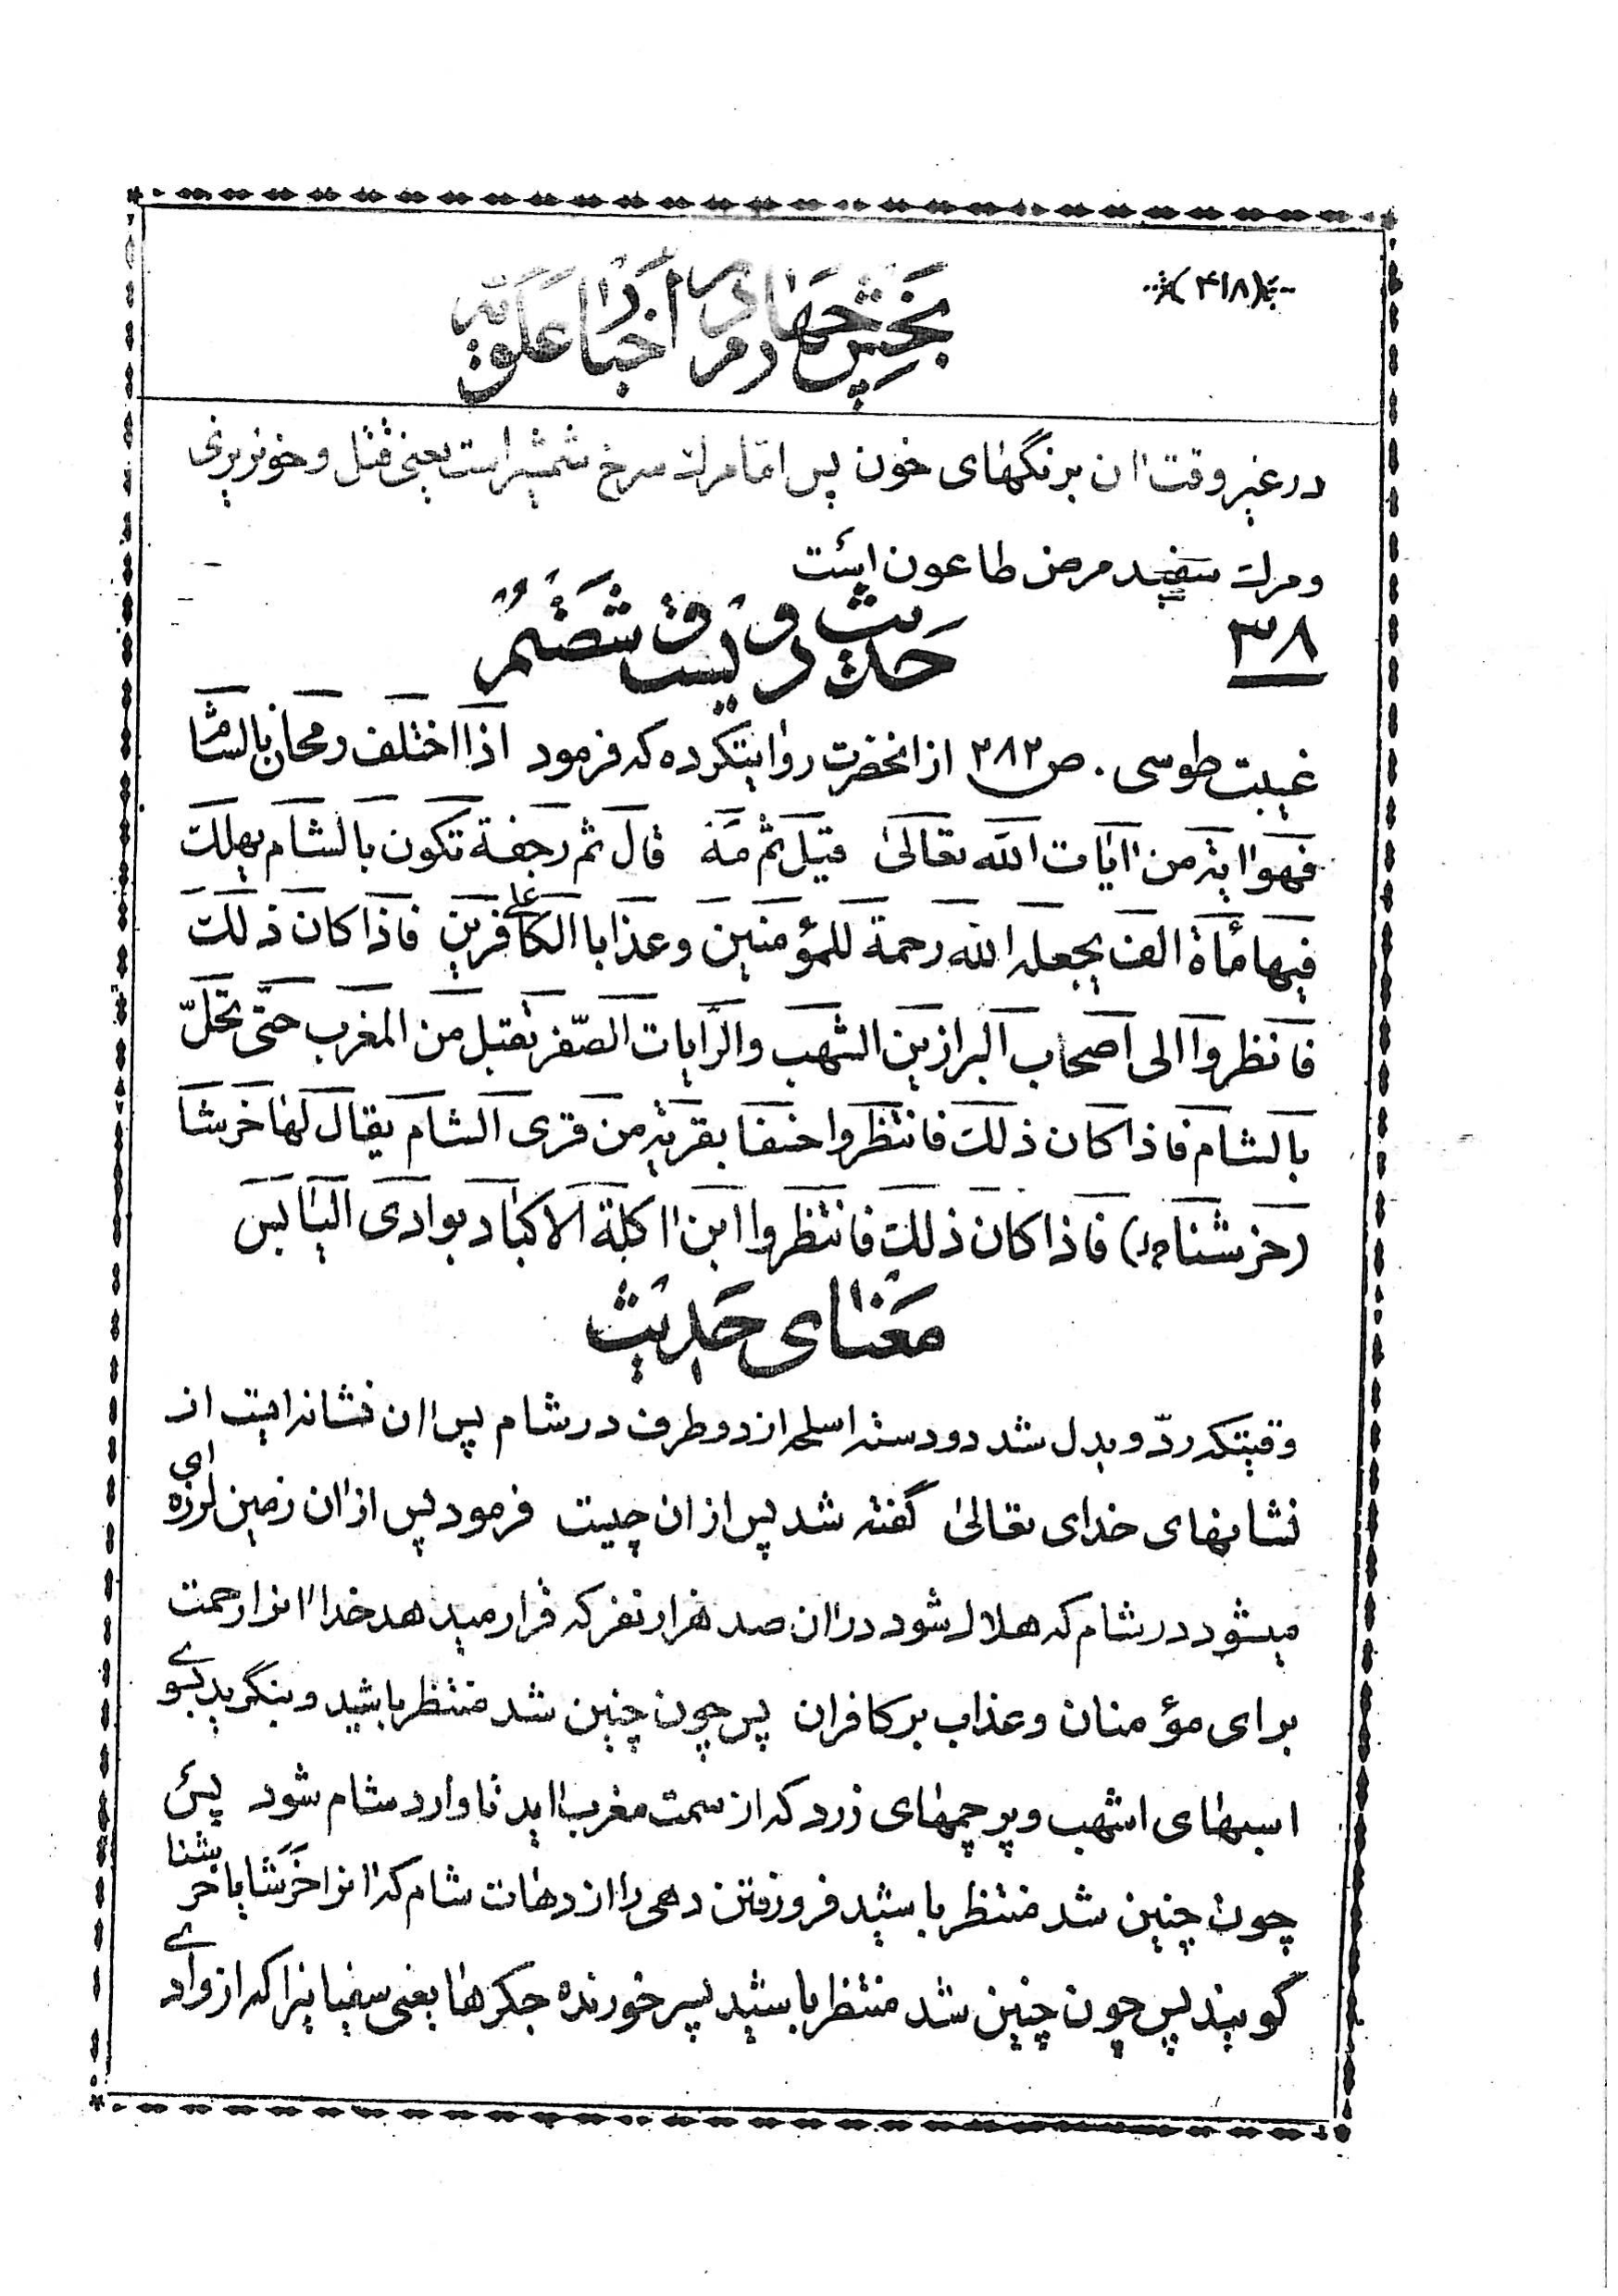 (۴۱۸)
بخش چهارم در اخبار علویه
در غیر وقت ان برنگهای خون پس امّا مرك سرخ شمشیر است یعنی قتل و خونریزی
و مرك سفید مرض طاعون است
۳۸
حدیث دویست و شصتم
غیبت طوسی . ص ۲۸۲ از انحضرت روایتکرده که فرمود اذا اختلف رمحان بالشام
فهو ایة من ایات الله تعالی قیل ثم مَه قال ثم رجفة تکون بالشام یهلك
فیها مأة الف یجعله الله رحمة للمؤمنین و عذابا علی الکافرین فاذا کان ذلك
فانظروا الی اصحاب البرازین الشهب و الرّایات الصّفر تقبل من المغرب حتّی تحلّ
بالشام فاذا کان ذلك فانتظروا خسفا بقریة من قری الشام یقال لها خرشا
(خرشنا م) فاذا کان ذلك فانتظروا ابن اکلة الاکباد بوادی الیابس
معنای حدیث
وقتیکه ردّ و بدل شد دو دسته اسلحه از دو طرف در شام پس ان نشانه ایست از
نشانهای خدای تعالی گفته شد پس از ان چیست فرمود پس از ان زمین لرزه ای
میشود در شام که هلاك شود در ان صد هزار نفر که قرار میدهد خدا انرا رحمت
برای مؤمنان و عذاب بر کافران پس چون چنین شد منتظر باشید و بنگرید بسوی
اسبهای اشهب و پرچمهای زرد که از سمت مغرب اید تا وارد شام شود پس
چون چنین شد منتظر باشید فرو رفتن دهی را از دهات شام که انرا خَرَشا یا خرشنا
گویند پس چون چنین شد منتظر باشید پسر خورنده جگرها یعنی سفیانیرا که از وادی